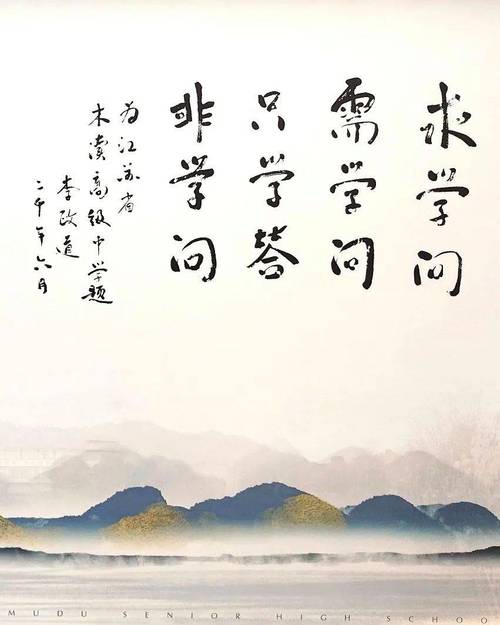 求学问
需学问
只学答
非学问
为江苏省
木渎高级中学题
李政道
二千年六月
MUDU SENIOR HIGH SCHOO